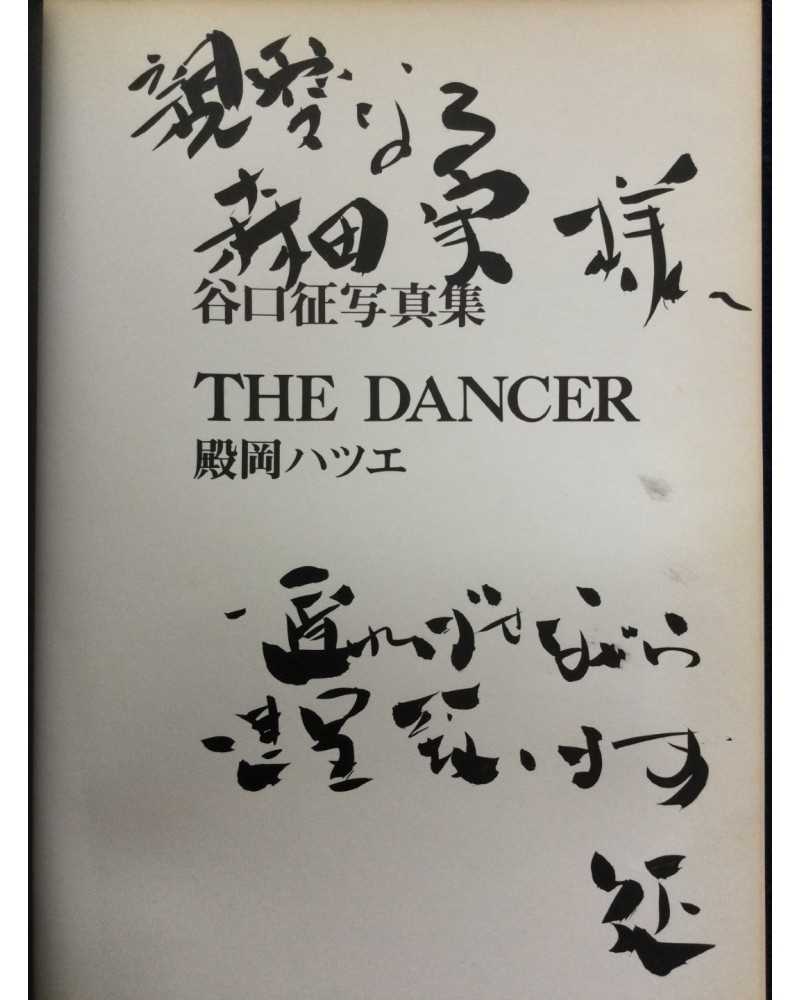 親愛なる
森田実様へ
谷口征写真集
THE DANCER
殿岡ハツエ
遅ればせながら
謹呈致します
征